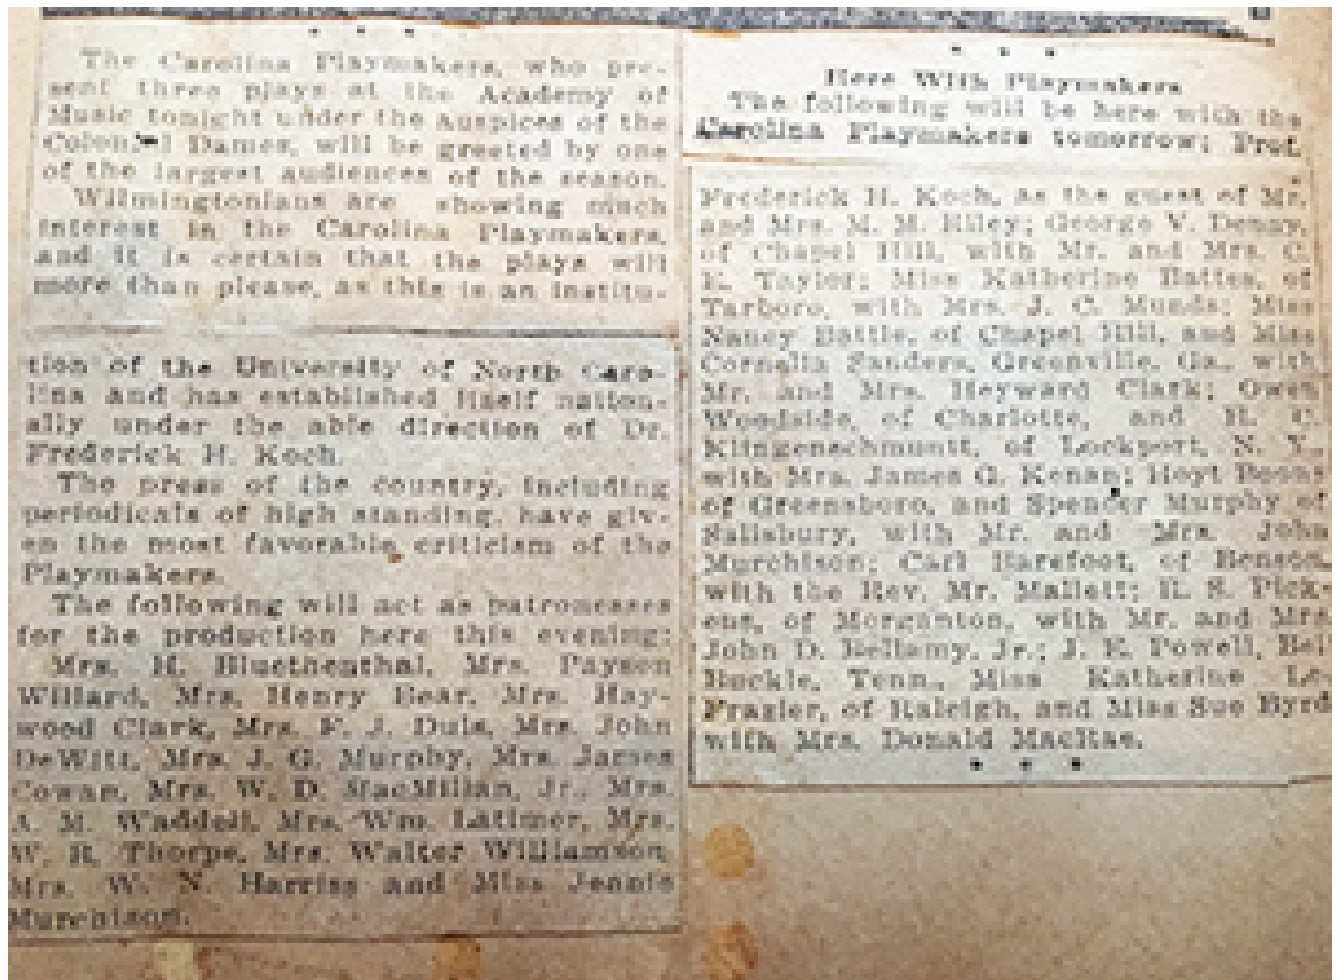 The Carolina Playmakers, who pre-
sent three plays at the Academy of
Music tonight under the auspices of the
Colonial Dames, will be greeted by one
of the largest audiences of the season.
Wilmingtonians are showing much
interest in the Carolina Playmakers,
and it is certain that the plays will
more than please, as this is an institu-
tion of the University of North Caro-
lina and has established itself nation-
ally under the able direction of Dr.
Frederick H. Koch.
The press of the country, including
periodicals of high standing, have giv-
en the most favorable criticism of the
Playmakers.
The following will act as patronesses
for the production here this evening:
Mrs. H. Bluethenthal, Mrs. Payson
Willard, Mrs. Henry Bear, Mrs. Hay-
wood Clark, Mrs. F. J. Duls, Mrs. John
DeWitt, Mrs. J. G. Murphy, Mrs. James
Cowan, Mrs. W. D. MacMillan, Jr., Mrs.
A. M. Waddell, Mrs. Wm. Latimer, Mrs.
W. R. Thorpe, Mrs. Walter Williamson,
Mrs. W. N. Harriss and Miss Jennie
Murchison.
Here With Playmakers
The following will be here with the
Carolina Playmakers tomorrow: Prof.
Frederick H. Koch, as the guest of Mr.
and Mrs. M. M. Riley; George V. Denny,
of Chapel Hill, with Mr. and Mrs. C.
E. Taylor; Miss Katherine Battes, of
Tarboro, with Mrs. J. C. Munds; Miss
Nancy Battle, of Chapel Hill, and Miss
Cornelia Sanders, Greenville, Ga., with
Mr. and Mrs. Heyward Clark; Owen
Woodside, of Charlotte, and H. C.
Klingenschmuntt, of Lockport, N. Y.,
with Mrs. James G. Kenan; Hoyt Boone
of Greensboro, and Spencer Murphy of
Salisbury, with Mr. and Mrs. John
Murchison; Carl Barefoot, of Benson,
with the Rev. Mr. Mallett; R. S. Pick-
ens, of Morganton, with Mr. and Mrs.
John D. Bellamy, Jr.; J. E. Powell, Bell
Buckle, Tenn., Miss Katherine Le-
Frazier, of Raleigh, and Miss Sue Byrd
with Mrs. Donald MacRae.